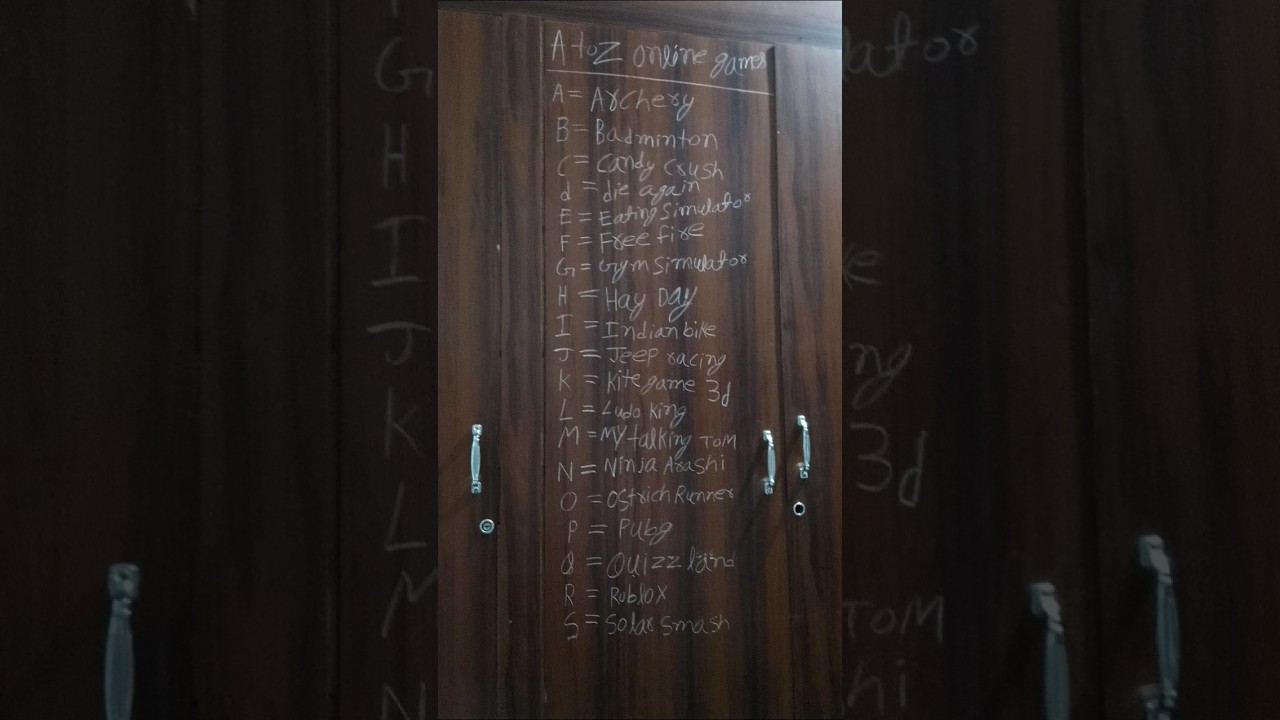 A to Z online games
A = Archery
B = Badminton
C = Candy Crush
d = die again
E = Eating Simulator
F = Free fire
G = Gym Simulator
H = Hay Day
I = Indian bike
J = Jeep racing
K = Kite game 3d
L = Ludo King
M = MY talking TOM
N = Ninja Arashi
O = Ostrich Runner
P = Pubg
Q = Quizz land
R = Roblox
S = Solar Smash